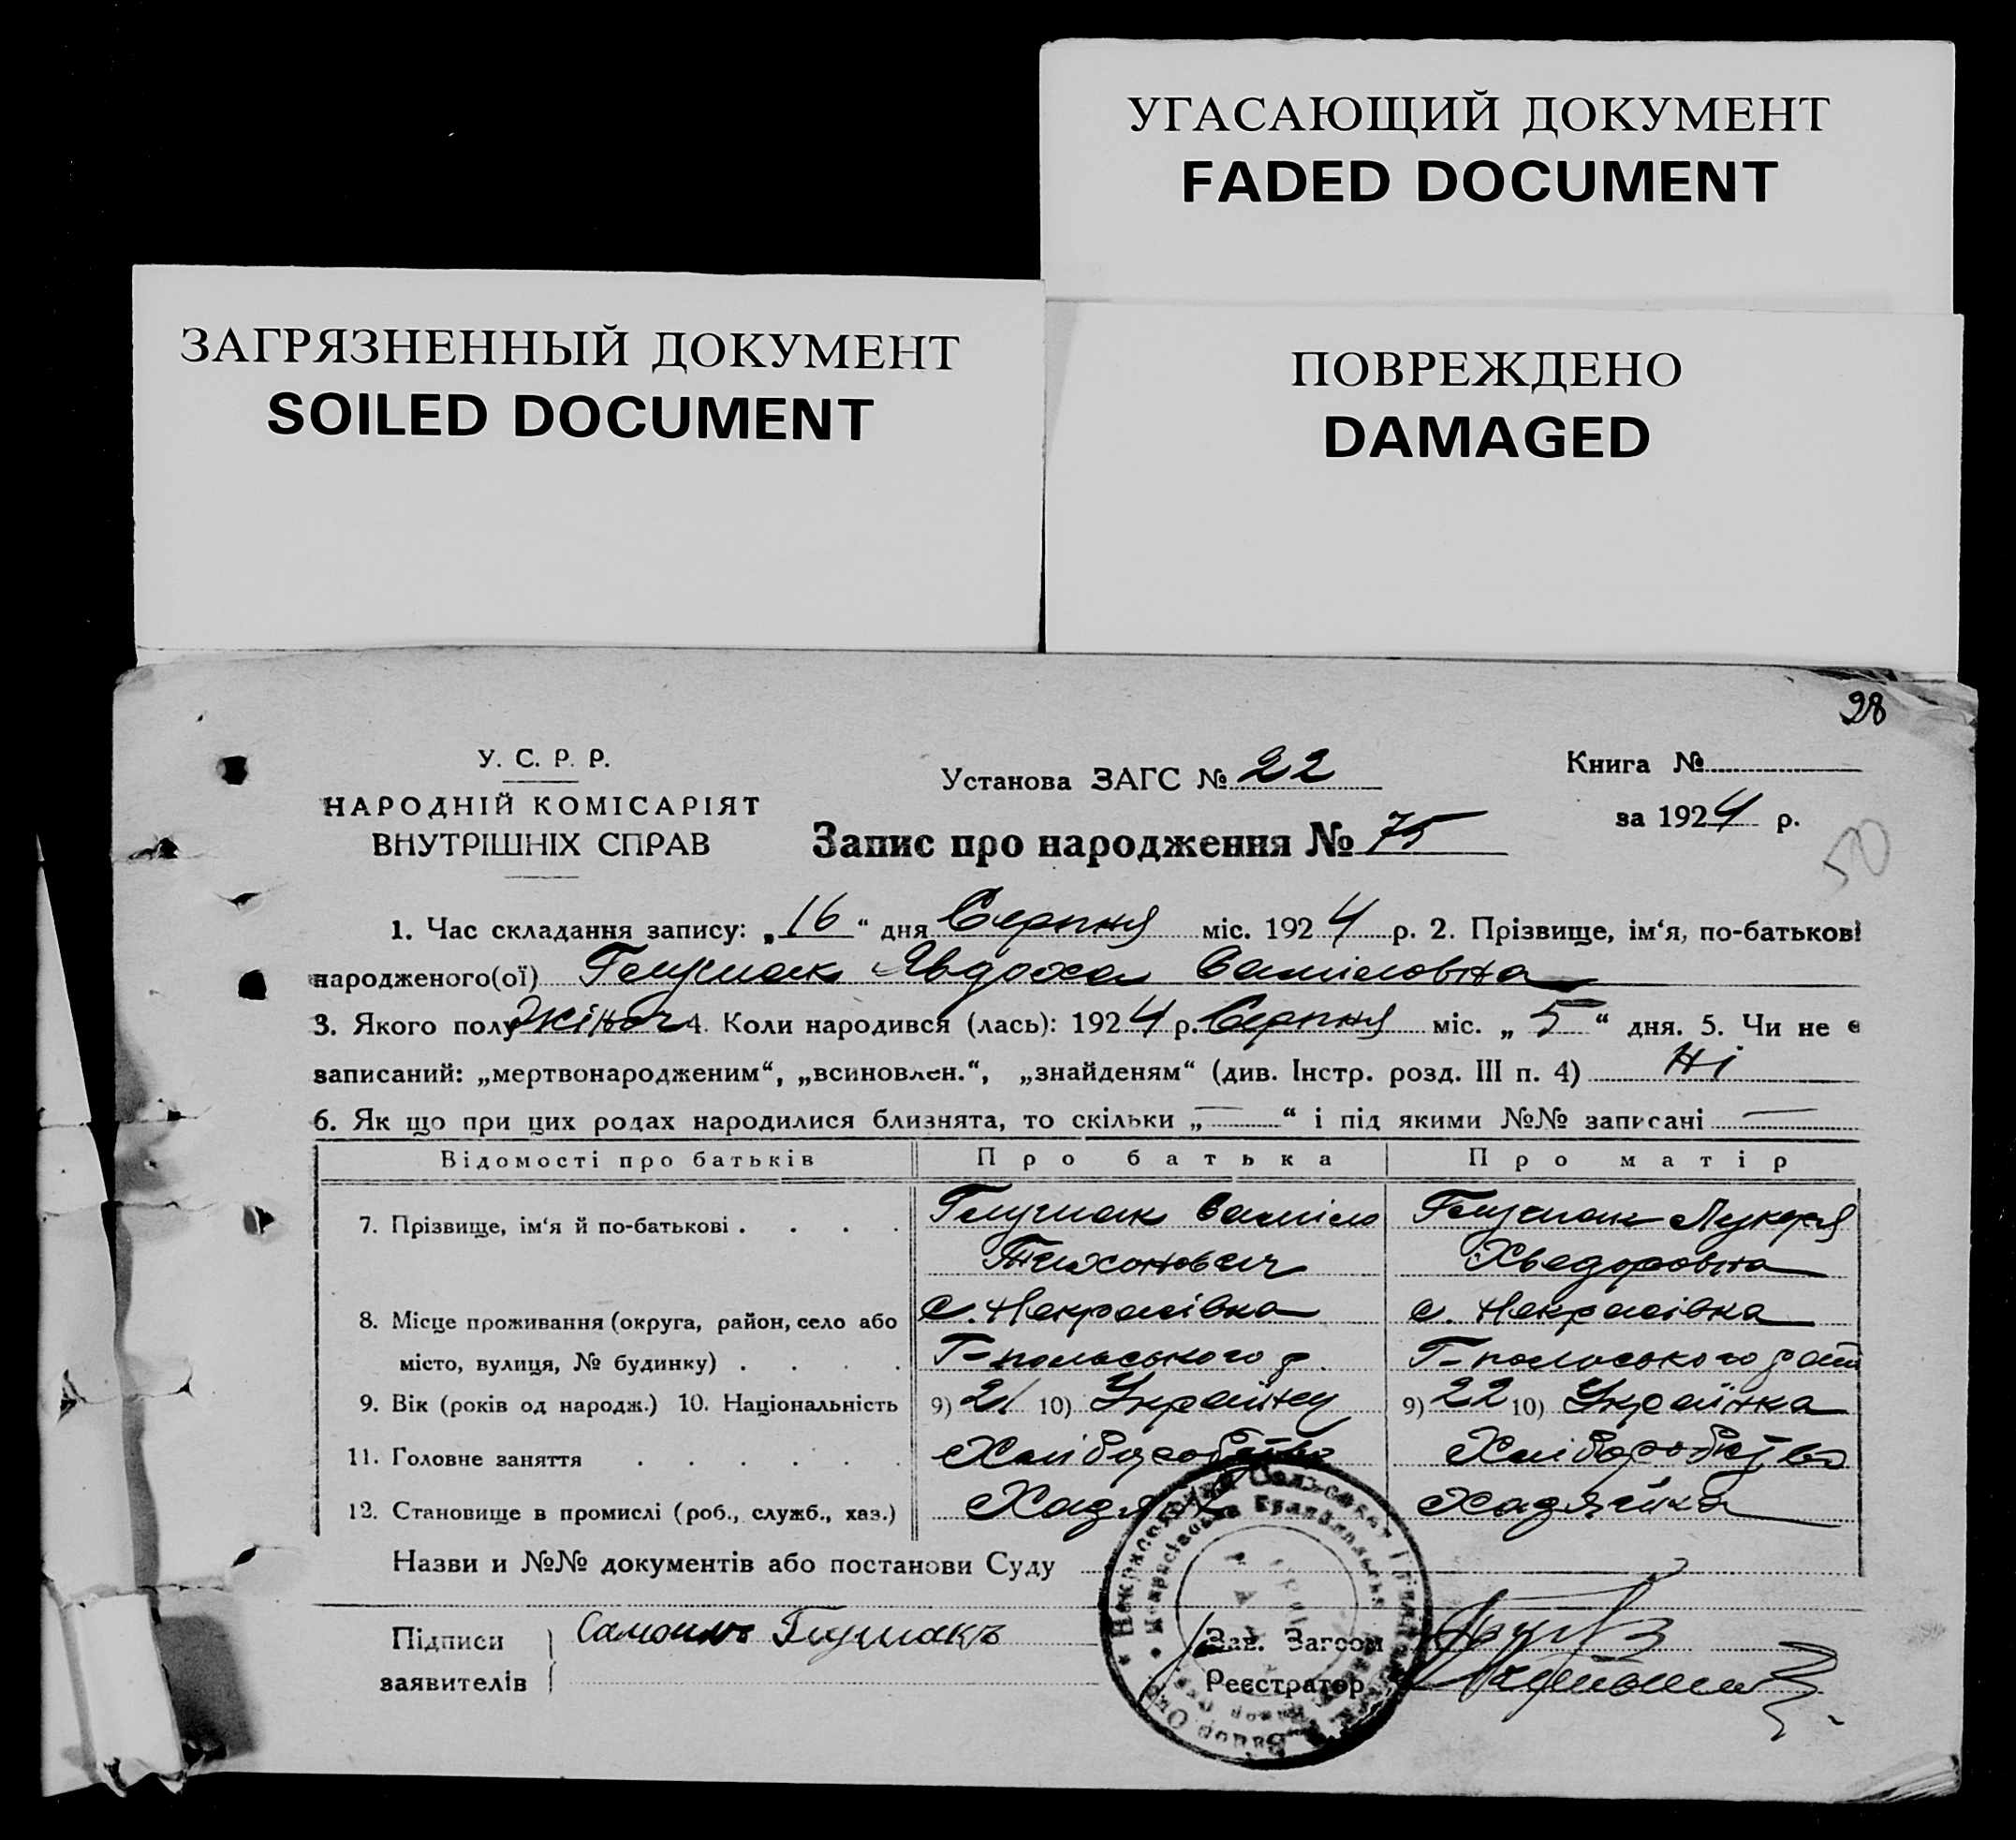 УГАСАЮЩИЙ ДОКУМЕНТ
FADED DOCUMENT
ЗАГРЯЗНЕННЫЙ ДОКУМЕНТ
SOILED DOCUMENT
ПОВРЕЖДЕНО
DAMAGED
28
У. С. Р. Р.
НАРОДНІЙ КОМІСАРІЯТ
ВНУТРІШНІХ СПРАВ
Установа ЗАГС № 22
Запис про народження № 75
Книга №
за 1924 р.
50
1. Час складання запису: „16“ дня Серпня міс. 1924 р. 2. Прізвище, ім‘я, по-батькові
народженого(ої) Явдоха
3. Якого полу жіноч 4. Коли народився (лась): 1924 р. Серпня міс. „5“ дня. 5. Чи не є
записаний: „мертвонародженим“, „всиновлен.“, „знайденям“ (див. Інстр. розд. III п. 4) Ні
6. Як що при цих родах народилися близнята, то скільки „—“ і під якими №№ записані —
Відомості про батьків Про батька Про матір
7. Прізвище, ім‘я й по-батькові . . . . Лукеря
Тихонович Хведоровна
8. Місце проживання (округа, район, село або с. Некрасівка с. Некрасівка
місто, вулиця, № будинку) . . . .
9. Вік (років од народж.) 10. Національність 9) 21 10) Українец 9) 22 10) Українка
11. Головне заняття . . . . . . Хліборобство Хліборобство
12. Становище в промислі (роб., служб., хаз.) Хадяйка
Назви и №№ документів або постанови Суду
Підписи заявителів
Зав. Загсом
Реєстратор